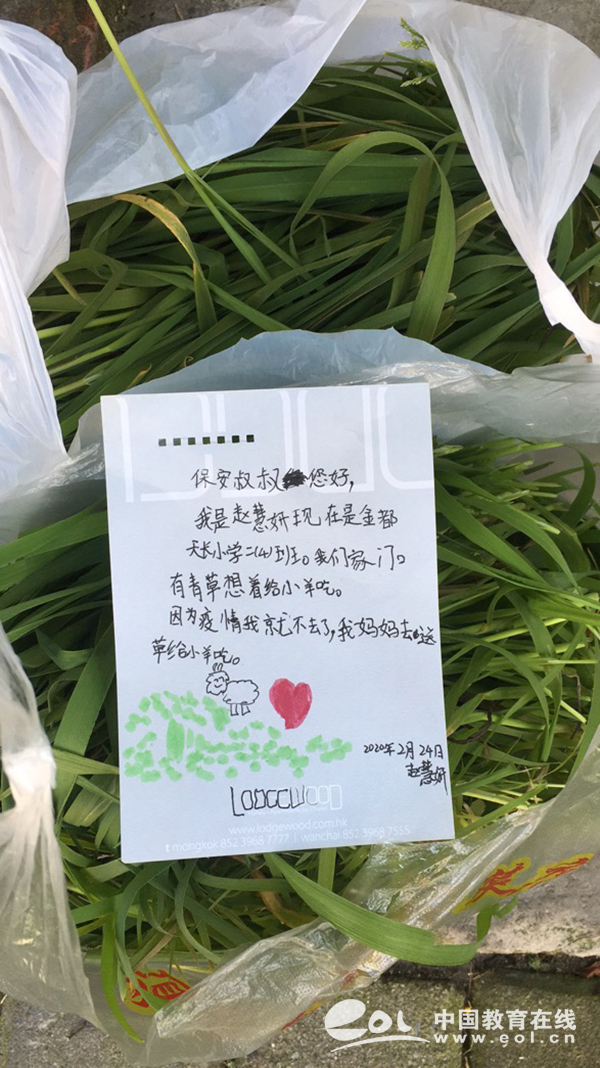 中国教育在线
保安叔叔您好，
我是赵慧妍现在是金都
天长小学二(4)班。我们家门口
有青草想着给小羊吃。
因为疫情我就不去了，我妈妈去送
草给小羊吃。
2020年2月24日
赵慧妍
LODGEWOOD
www.lodgewood.com.hk
t mongkok 852 3968 7777 | wanchai 852 3968 7555
酒
eol 中国教育在线
www.eol.cn